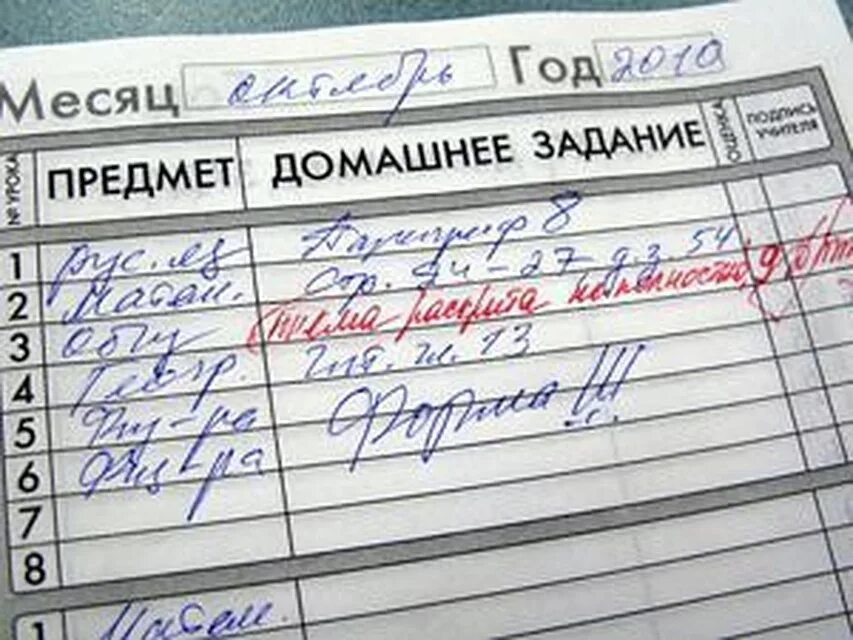 Месяц октябрь Год 2010
№ УРОКА ПРЕДМЕТ ДОМАШНЕЕ ЗАДАНИЕ ОЦЕНКА ПОДПИСЬ УЧИТЕЛЯ
1 рус. яз Параграф 8
2 Матем. стр. 24-27 д.з. 54
3 Общ тема раскрыта не полностью
4 Геогр. Чит. гл. 13
5 Фи-ра Форма!!!
6 Физ-ра
7
8
1 Матем.